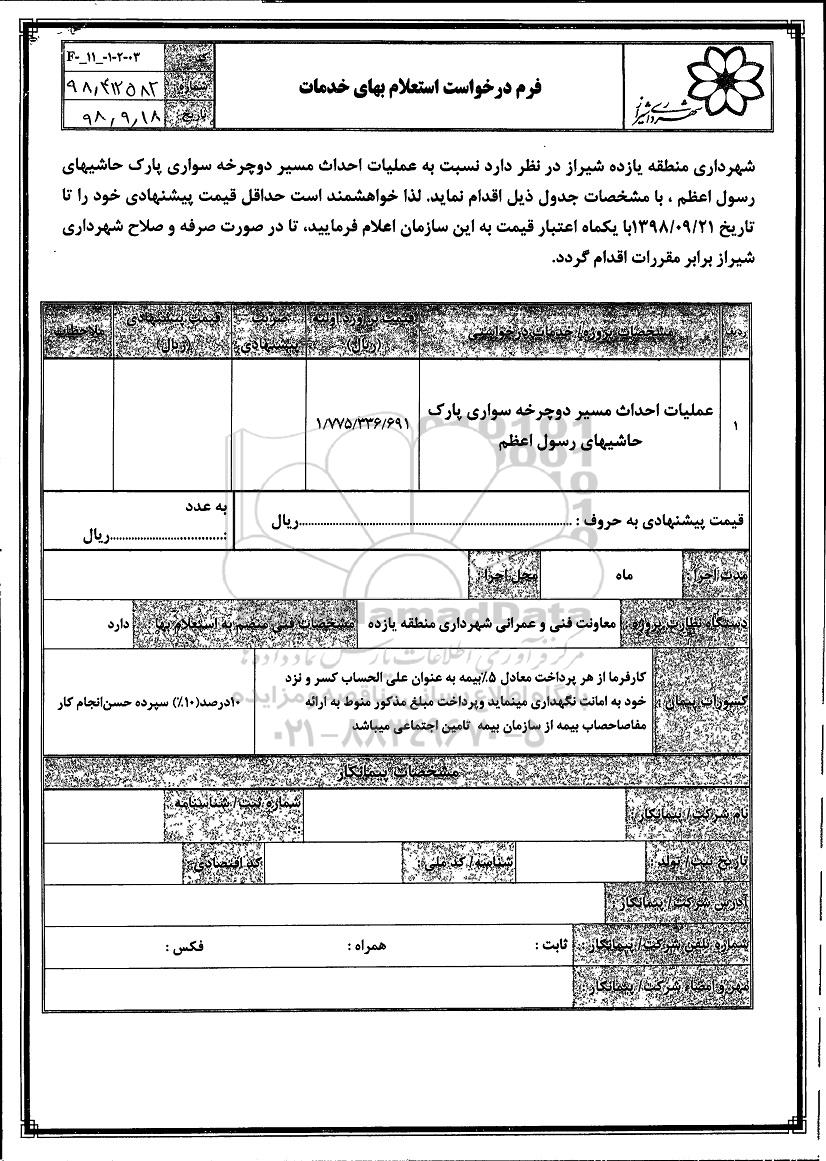 شهرداری شیراز
فرم درخواست استعلام بهای خدمات
کد: F-_۱۱_-۱-۲-۰۳
شماره: ۹۸/۴۲۵۸۲
تاریخ: ۹۸/۹/۱۸
شهرداری منطقه یازده شیراز در نظر دارد نسبت به عملیات احداث مسیر دوچرخه سواری پارک حاشیهای
رسول اعظم ، با مشخصات جدول ذیل اقدام نماید. لذا خواهشمند است حداقل قیمت پیشنهادی خود را تا
تاریخ ۱۳۹۸/۰۹/۲۱با یکماه اعتبار قیمت به این سازمان اعلام فرمایید، تا در صورت صرفه و صلاح شهرداری
شیراز برابر مقررات اقدام گردد.
ردیف مشخصات پروژه/ خدمات درخواستی قیمت برآورد اولیه (ریال) ضریب پیشنهادی قیمت پیشنهادی (ریال) ملاحظات
۱ عملیات احداث مسیر دوچرخه سواری پارک حاشیهای رسول اعظم ۱/۷۷۵/۳۳۶/۶۹۱
قیمت پیشنهادی به حروف : ........................................ریال
به عدد
:...................................ریال
مدت اجرا: ماه محل اجرا :
دستگاه نظارت پروژه : معاونت فنی و عمرانی شهرداری منطقه یازده مشخصات فنی منضم به استعلام بها : دارد
کسورات پیمان : کارفرما از هر پرداخت معادل ۵٪بیمه به عنوان علی الحساب کسر و نزد
خود به امانت نگهداری مینماید وپرداخت مبلغ مذکور منوط به ارائه
مفاصاحصاب بیمه از سازمان بیمه تامین اجتماعی میباشد
۱۰درصد(۱۰٪) سپرده حسن‌انجام کار
مشخصات پیمانکار
نام شرکت/ پیمانکار : شماره ثبت/ شناسنامه :
تاریخ ثبت/ تولد : شناسه/ کد ملی : کد اقتصادی :
آدرس شرکت/ پیمانکار :
شماره تلفن شرکت/ پیمانکار : ثابت : همراه : فکس :
مهر و امضاء شرکت/ پیمانکار :
NamadData
مرکز فرآوری اطلاعات پارس نماد داده‌ها
پایگاه اطلاع رسانی مناقصه و مزایده
۰۲۱-۸۸۳۴۹۶۷۰-۵